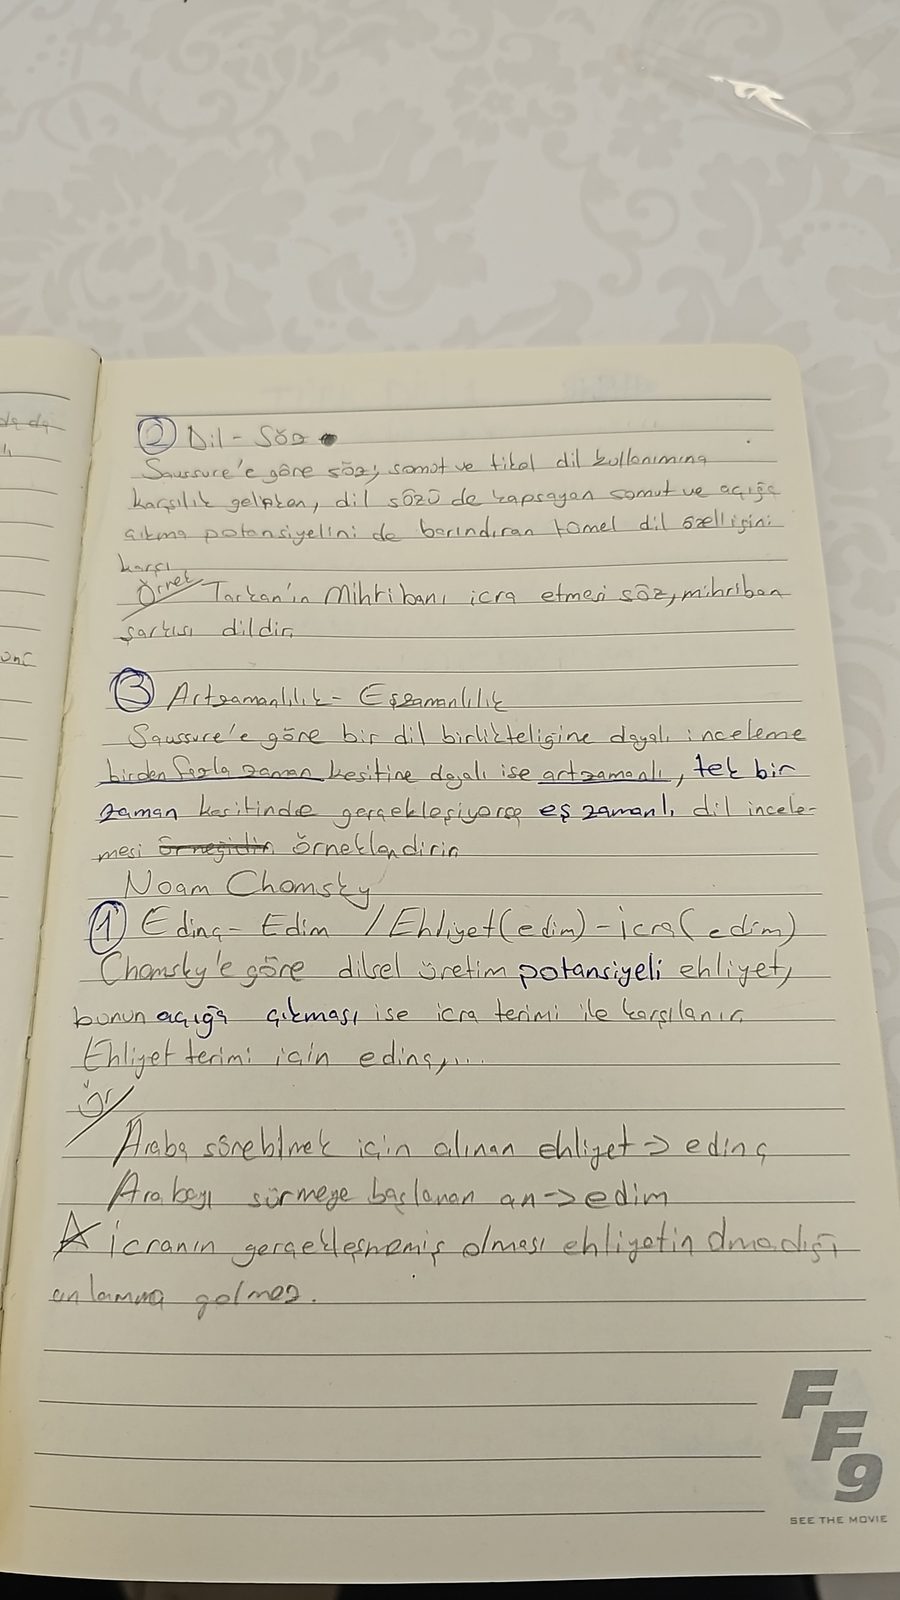 ② Dil - Söz
Saussure'e göre söz, somut ve tikel dil kullanımına
karşılık gelirken, dil sözü de kapsayan somut ve açığa
çıkma potansiyelini de barındıran temel dil özelliğini
karşı
Örnek Tarkan'ın Mihribanı icra etmesi söz, mihriban
şarkısı dildir.
③ Artzamanlılık - Eşzamanlılık
Saussure'e göre bir dil birlikteliğine dayalı inceleme
birden fazla zaman kesitine dayalı ise artzamanlı, tek bir
zaman kesitinde gerçekleşiyorsa eş zamanlı dil incele-
mesi örneğidir örneklendirir.
Noam Chomsky
① Edinç - Edim / Ehliyet (edim) - icra (edim)
Chomsky'e göre dilsel üretim potansiyeli ehliyet,
bunun açığa çıkması ise icra terimi ile karşılanır.
Ehliyet terimi için edinç,...
Ör/
Araba sürebilmek için alınan ehliyet → edinç
Arabayı sürmeye başlanan an → edim
icranın gerçekleşmemiş olması ehliyetin olmadığı
anlamına gelmez.
FF9
SEE THE MOVIE